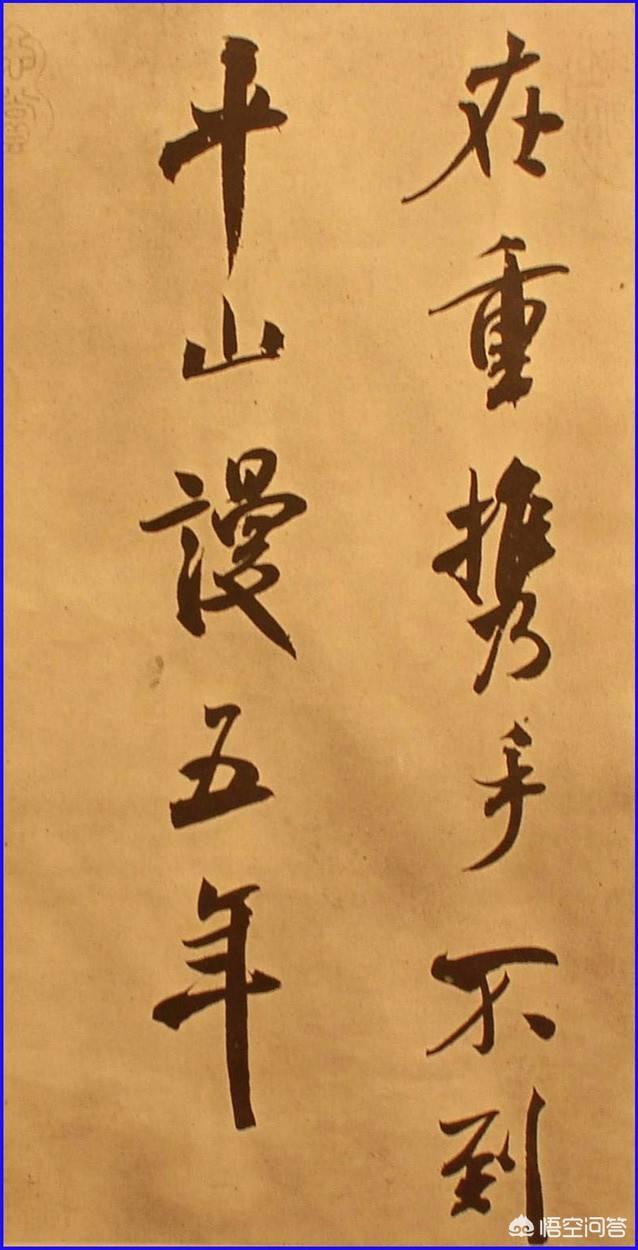 在重携手不到
平山謾五年
悟空问答